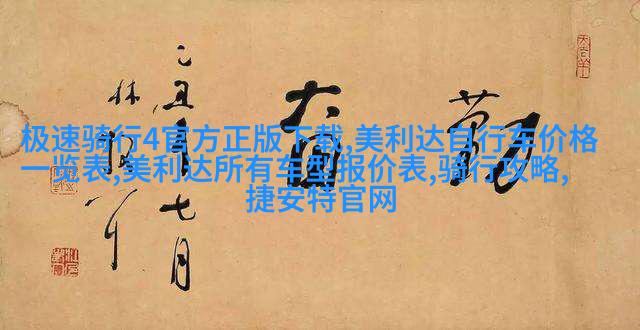 极速骑行4官方正版下载,美利达自行车价格
一览表,美利达所有车型报价表,骑行攻略,
捷安特官网
勤
乙丑年七月
林散耳